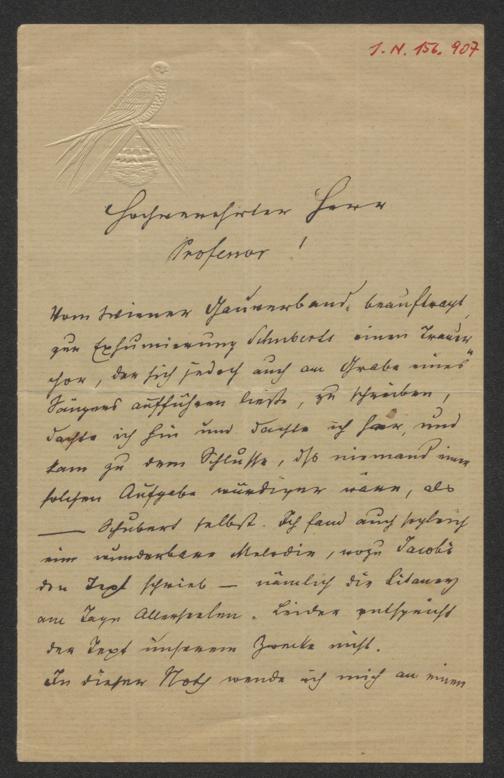 I. N. 156.907
Hochverehrter Herr
Professor!
Vom Wiener Gauverband, beauftragt,
zur Exhumierung Schuberts einen Trauer
chor, der sich jedoch auch am Grabe eines
Sängers aufführen ließe, zu schreiben,
dachte ich hin und dachte ich her, und
kam zu dem Schlusse, dß niemand einer
solchen Aufgabe würdiger wäre, als
— Schubert selbst. Ich fand auch sogleich
eine wunderbare Melodie, wozu Jacobi
den Text schrieb — nämlich die Litaney
am Tage Allerseelen. Leider entspricht
der Text unserem Zwecke nicht.
In dieser Noth wende ich mich an einen